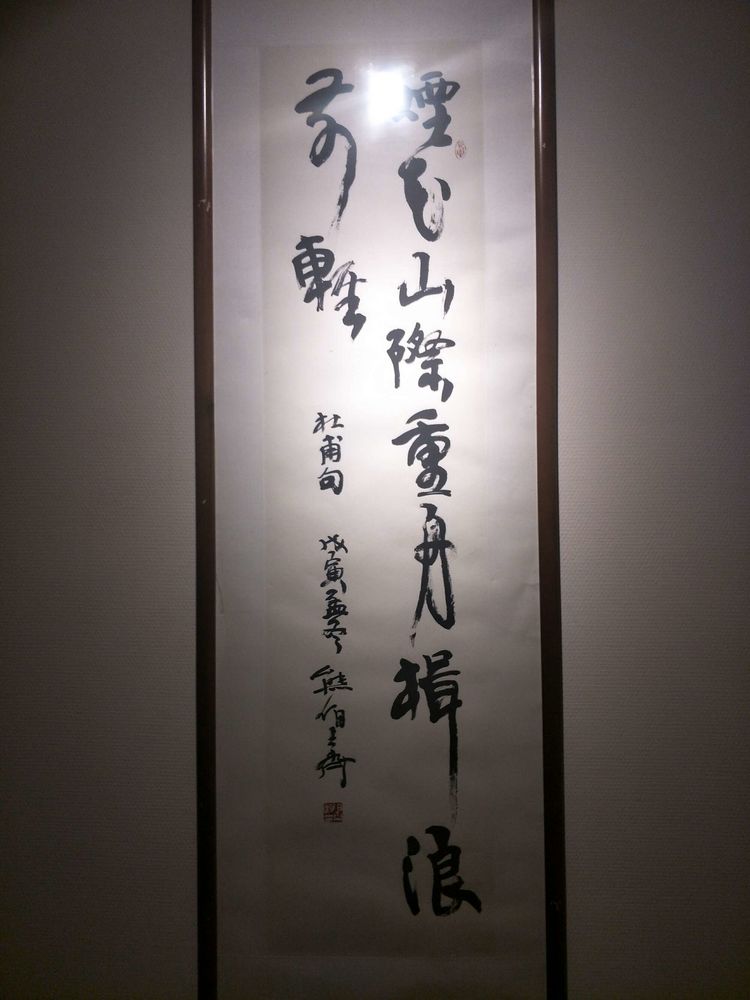 煙花山際重舟楫浪
前輕
杜甫句 戊寅孟冬 熊伯齊